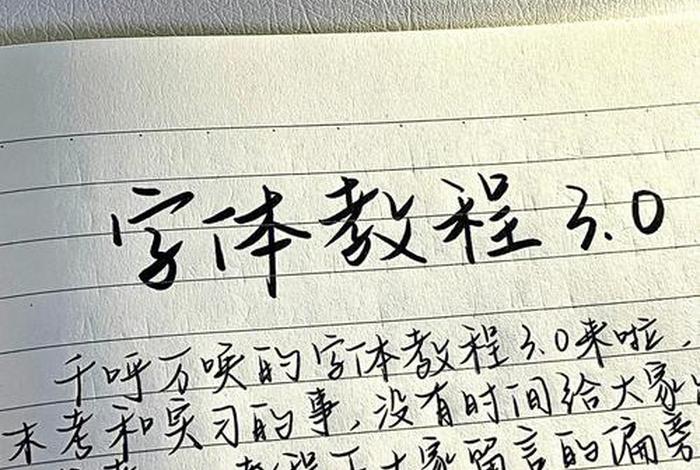 字体教程3.0
千呼万唤的字体教程3.0来啦,
末考和实习的事,没有时间给大家
教程下大家留言的偏旁